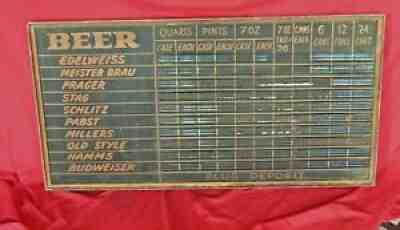 BEER
QUARTS PINTS 7 OZ 7 OZ CANS 6 12 24
CASE EACH CASE EACH CASE EACH
EDELWEISS
MEISTER BRAU
PRAGER
STAG
SCHLITZ
PABST
MILLERS
OLD STYLE
HAMMS
BUDWEISER
PLUS DEPOSIT